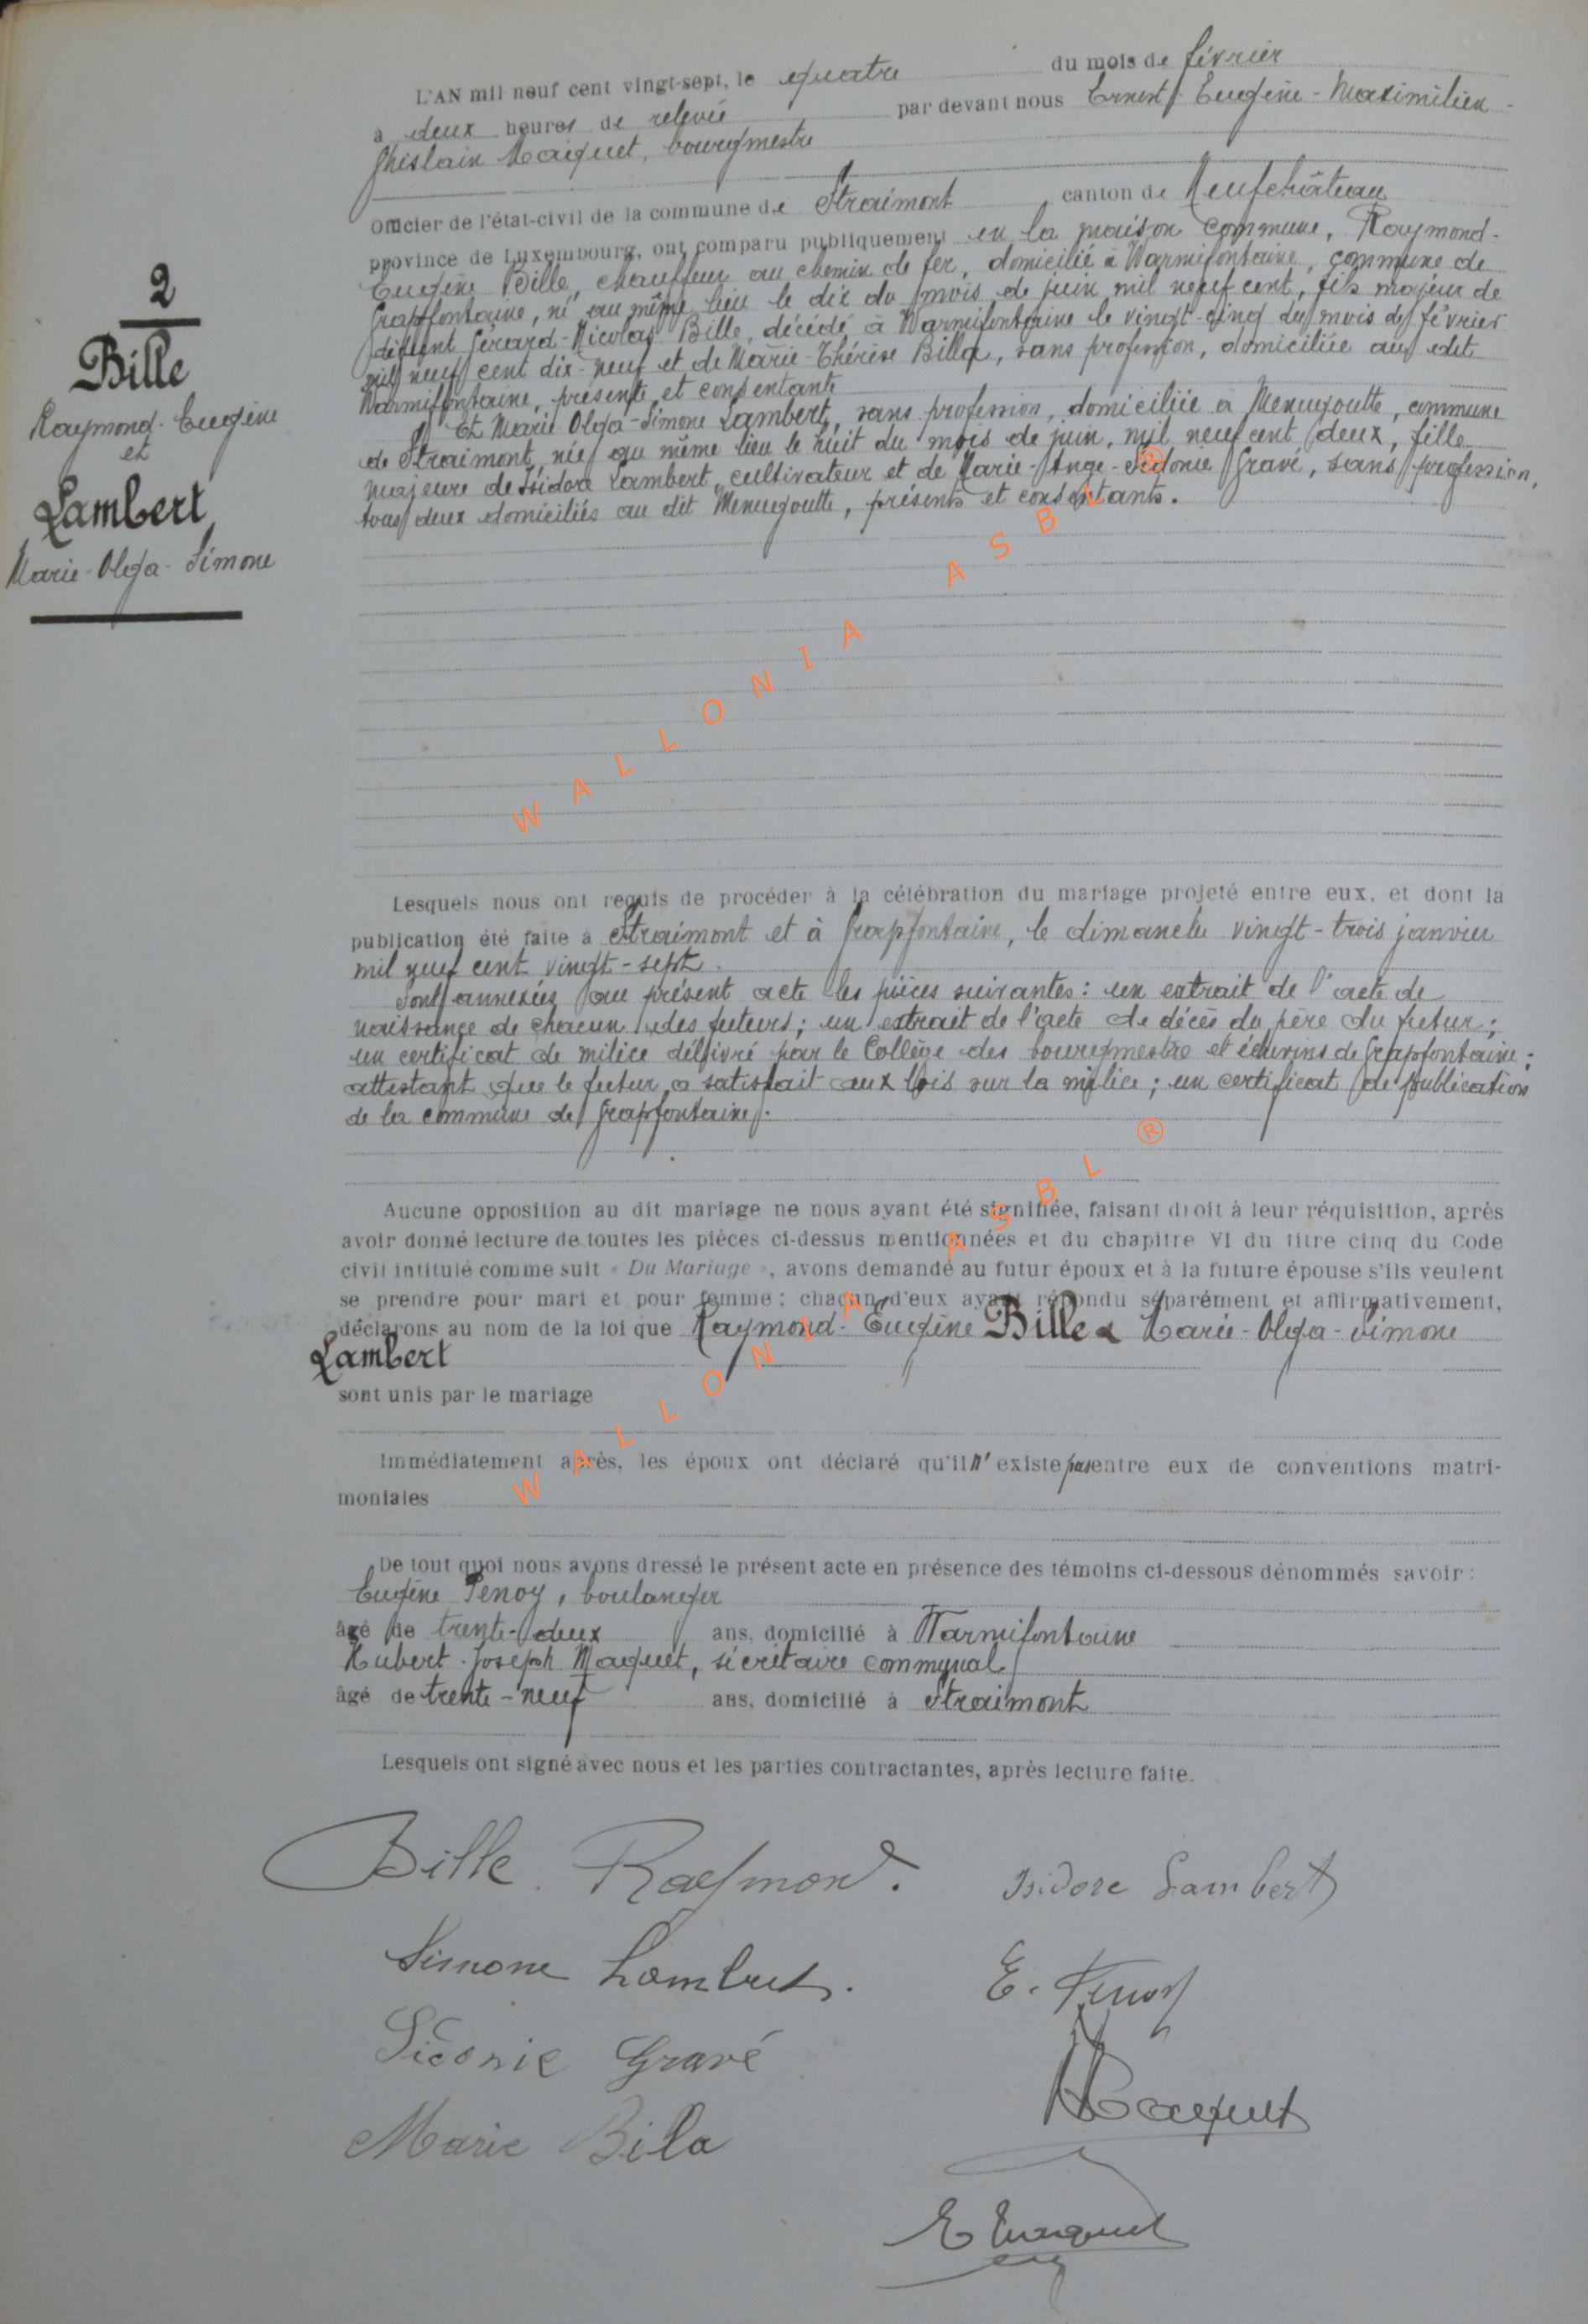 2
Bille
Raymond-Eugène
et
Lambert
Marie-Olga-Simone
L'AN mil neuf cent vingt-sept, le quatre du mois de février
à deux heures de relevée par devant nous Ernest-Eugène-Maximilien-
Ghislain Maquet, bourgmestre
Officier de l'état-civil de la commune de Straimont canton de Neufchâteau
province de Luxembourg, ont comparu publiquement en la maison commune, Raymond-
Eugène Bille, chauffeur au chemin de fer, domicilié à Warmifontaine, commune de
Grapfontaine, né au même lieu le dix du mois de juin mil neuf cent, fils majeur de
défunt Gérard-Nicolas Bille, décédé à Warmifontaine le vingt-cinq du mois de février
mil neuf cent dix-neuf et de Marie-Thérèse Billa, sans profession, domiciliée au dit
Warmifontaine, présente et consentante
Et Marie Olga-Simone Lambert, sans profession, domiciliée à Menugoutte, commune
de Straimont, née au même lieu le huit du mois de juin, mil neuf cent deux, fille
majeure de Isidore Lambert, cultivateur et de Marie-Ange-Sidonie Gravé, sans profession,
tous deux domiciliés au dit Menugoutte, présents et consentants.
WALLONIA ASBL ®
Lesquels nous ont requis de procéder à la célébration du mariage projeté entre eux, et dont la
publication été faite à Straimont et à Grapfontaine, le dimanche vingt-trois janvier
mil neuf cent vingt-sept.
Sont annexées au présent acte les pièces suivantes : un extrait de l'acte de
naissance de chacun des futurs ; un extrait de l'acte de décès du père du futur ;
un certificat de milice délivré par le Collège des bourgmestre et échevins de Grapfontaine ;
attestant que le futur a satisfait aux lois sur la milice ; un certificat de publication
de la commune de Grapfontaine.
Aucune opposition au dit mariage ne nous ayant été signifiée, faisant droit à leur réquisition, après
avoir donné lecture de toutes les pièces ci-dessus mentionnées et du chapitre VI du titre cinq du Code
civil intitulé comme suit « Du Mariage », avons demandé au futur époux et à la future épouse s'ils veulent
se prendre pour mari et pour femme ; chacun d'eux ayant répondu séparément et affirmativement,
déclarons au nom de la loi que Raymond-Eugène Bille & Marie-Olga-Simone
Lambert
sont unis par le mariage
WALLONIA ASBL ®
Immédiatement après, les époux ont déclaré qu'il n'existe pas entre eux de conventions matri-
moniales
De tout quoi nous avons dressé le présent acte en présence des témoins ci-dessous dénommés savoir :
Eugène Penoy, boulanger
âgé de trente-deux ans, domicilié à Warmifontaine
Hubert-Joseph Maquet, secrétaire communal
âgé de trente-neuf ans, domicilié à Straimont
Lesquels ont signé avec nous et les parties contractantes, après lecture faite.
Bille Raymond. Isidore Lambert
Simone Lambert. E. Penoy
Sidonie Gravé
Maquet
Marie Bila
E Maquet